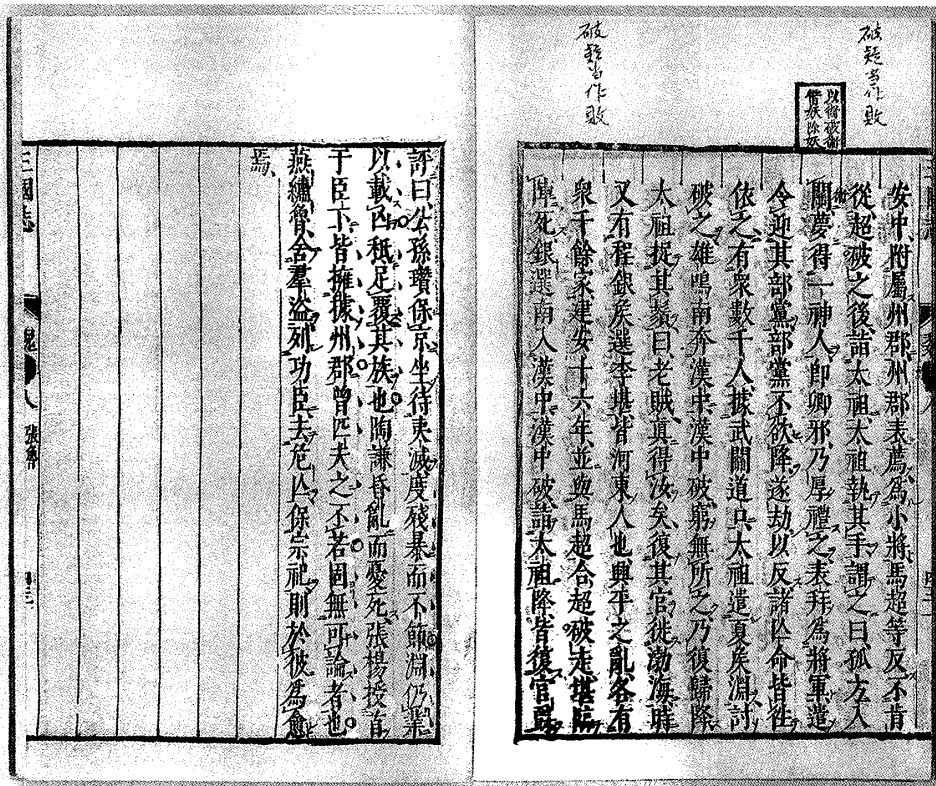 破疑当作敗
破疑当作敗
以術破術
借妖除妖
安中附屬州郡州郡表薦爲小將馬超等反不肯
從超破之後詣太祖太祖執其手謂之曰孤方入
關夢得一神人卽卿邪乃厚禮之表拜爲將軍遣
令迎其部黨部黨不欲降遂劫以反諸亾命皆往
依之有衆數千人據武關道口太祖遣夏矦淵討
破之雄鳴南奔漢中漢中破窮無所之乃復歸降
太祖捉其鬚曰老賊眞得汝矣復其官徙勃海時
又有程銀矦選李堪皆河東人也興平之亂各有
衆千餘家建安十六年並與馬超合超破走堪臨
陣死銀選南入漢中漢中破詣太祖降皆復官爵
評曰公孫瓚保京坐待夷滅度殘暴而不節淵仍業
以載凶秪足覆其族也陶謙昏亂而憂死張楊授首
于臣下皆擁據州郡曾匹夫之不若固無可論者也
燕繡魯舍羣盜列功臣去危亾保宗祀則於彼爲愈
焉
三國志
八
張魯